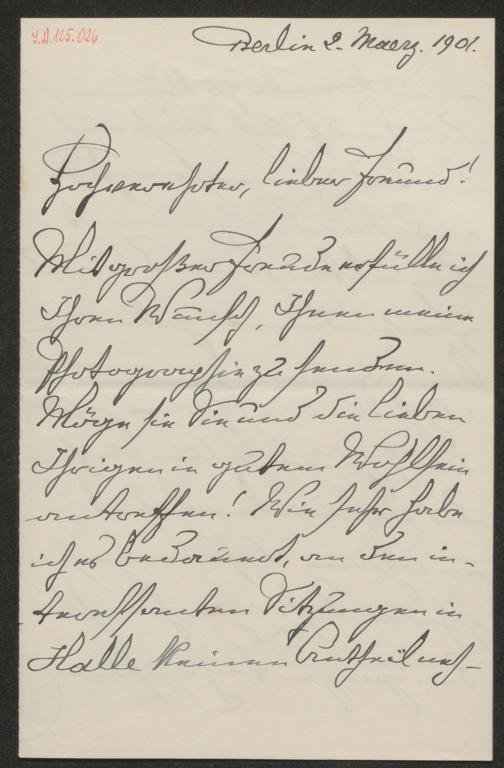 I.N. 125.026
Berlin 2. Maerz. 1901.
Hochverehrter, lieber Freund!
Mit großer Freude erfülle ich
Ihren Wunsch, Ihnen meine
Photographie zu senden.
Möge sie Sie und die lieben
Ihrigen in gutem Wohlsein
antreffen! Wie sehr habe
ich es bedauert, an den in-
teressanten Sitzungen in
Halle keinen Antheil neh-